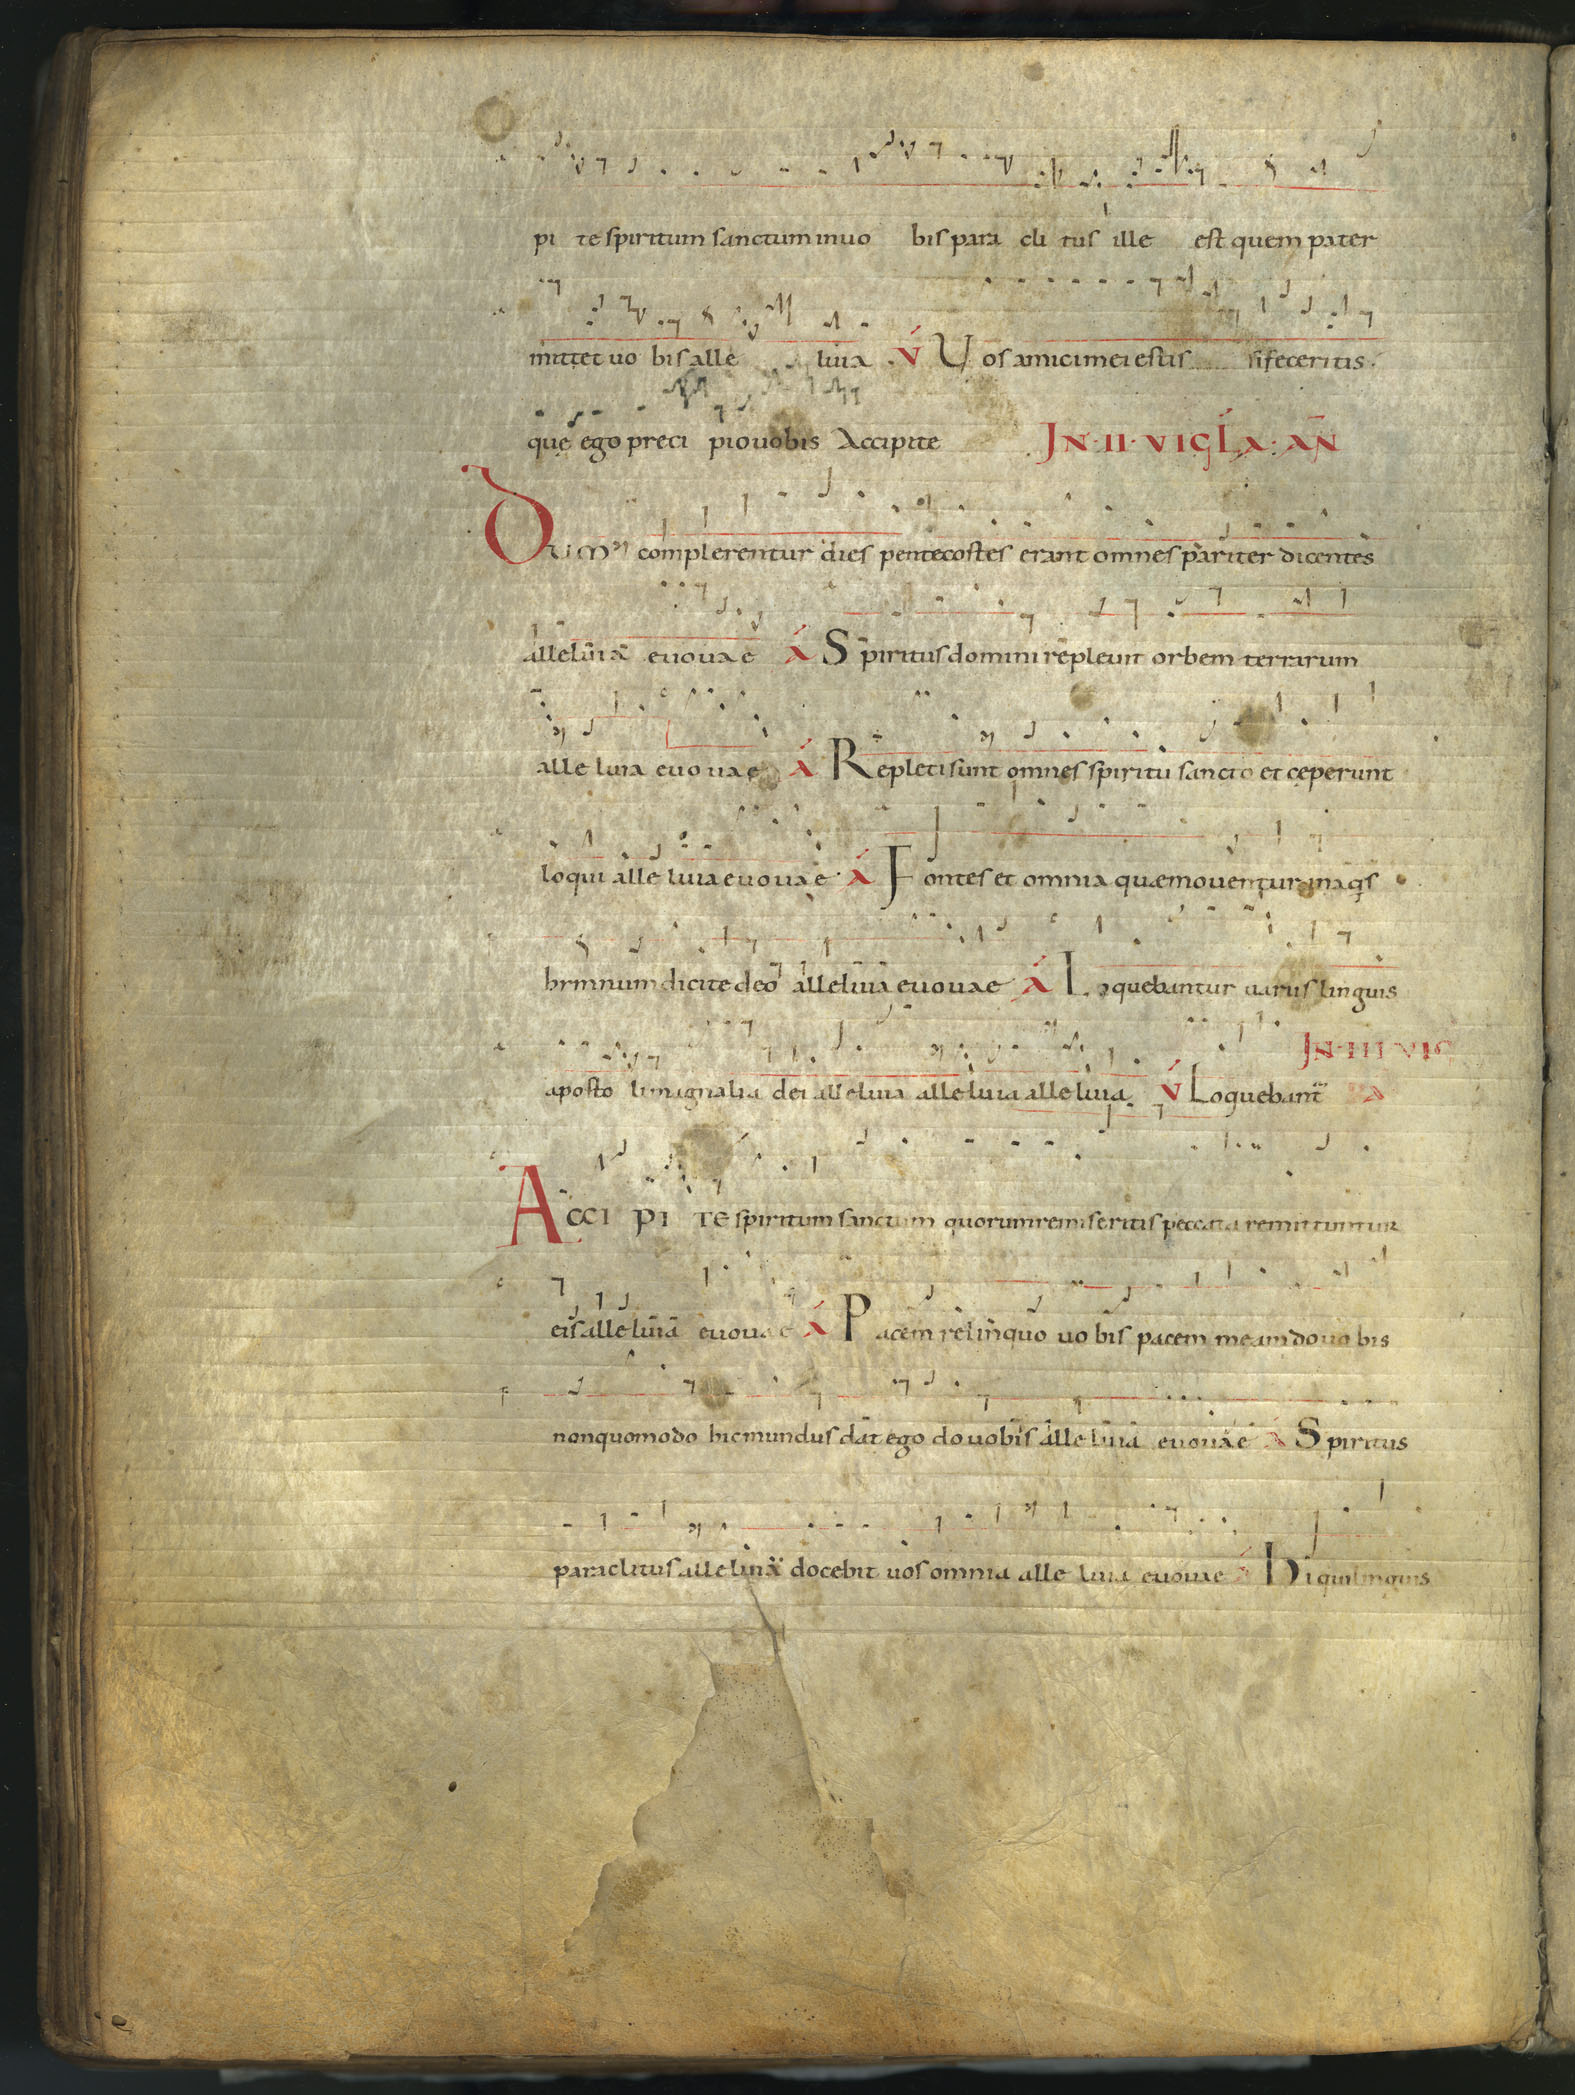 pi te spiritum sanctum in uo bis para cli tus ille est quem pater
mittet uo bis alle luia v Uos amici mei estis si feceritis
quę ego preci pio uobis Accipite IN · II · VIGLA · AN
Dum complerentur dies pentecostes erant omnes pariter dicentes
alleluia euouae A Spiritus domini repleuit orbem terrarum
alle luia euouae A Repleti sunt omnes spiritu sancto et ceperunt
loqui alle luia euouae A Fontes et omnia quæ mouentur in aqis
himnum dicite deo alleluia euouae A Loquebantur uariis linguis
aposto li magnalia dei alleluia alleluia alleluia v Loquebant IN III VIG A
Acci pi te spiritum sanctum quorum remiseritis peccata remittuntur
eis alleluia euouae A Pacem relinquo uo bis pacem meam do uo bis
non quomodo hic mundus dat ego do uobis alle luia euouae A Spiritus
paraclitus alleluia docebit uos omnia alle luia euouae A Hi qui linguis